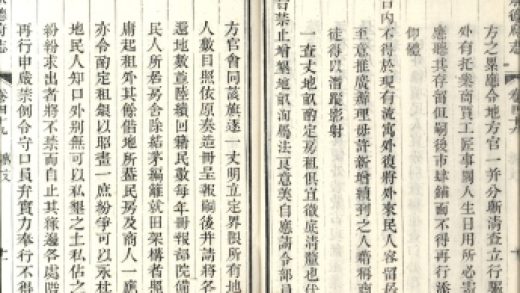 方之累應令地方官一並分斷清查立行驅
外有托業商賈工匠事關人生日用所必需
應聽其存留但嗣後市肆鋪面不得再行添
仰禮
口內不得於現有流寓外復將外來民人容留居
至意推廣辦理毋許新增續到之人藉稱商
徒得以潛蹤影射
一查丈地畝酌定房租俱宜徹底清釐也伏
旨禁止增墾地畝洵屬法良意美自應請令部員
方官會同該旗逐一丈明立定界限所有地
人數目照依原奏造冊呈報嗣後并請將各
還地數並陸續回籍民數每年冊報部院備
民人所名房舍除結茅編籬就田架構者照
庸起租外其餘借地所蓋民房及商人一應
亦令酌定租銀以昭畫一庶紛爭可以永杜
民人知口外別無可以私墾之土私佔之
紛紛求出者將不禁而自止其緣邊各處階
再行申嚴禁例令守口員弁實力奉行不得
承德府志
卷四十九